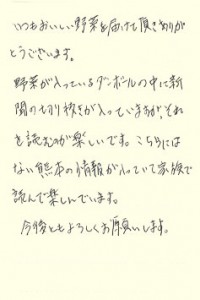 いつもおいしい野菜を届けて頂きありが
とうございます。
野菜が入っているダンボールの中に新
聞の切り抜きが入っていますが、それ
を読むのが楽しいです。こちらには
ない熊本の情報が入っていて家族で
読んで楽しんでいます。
今後ともよろしくお願いします。